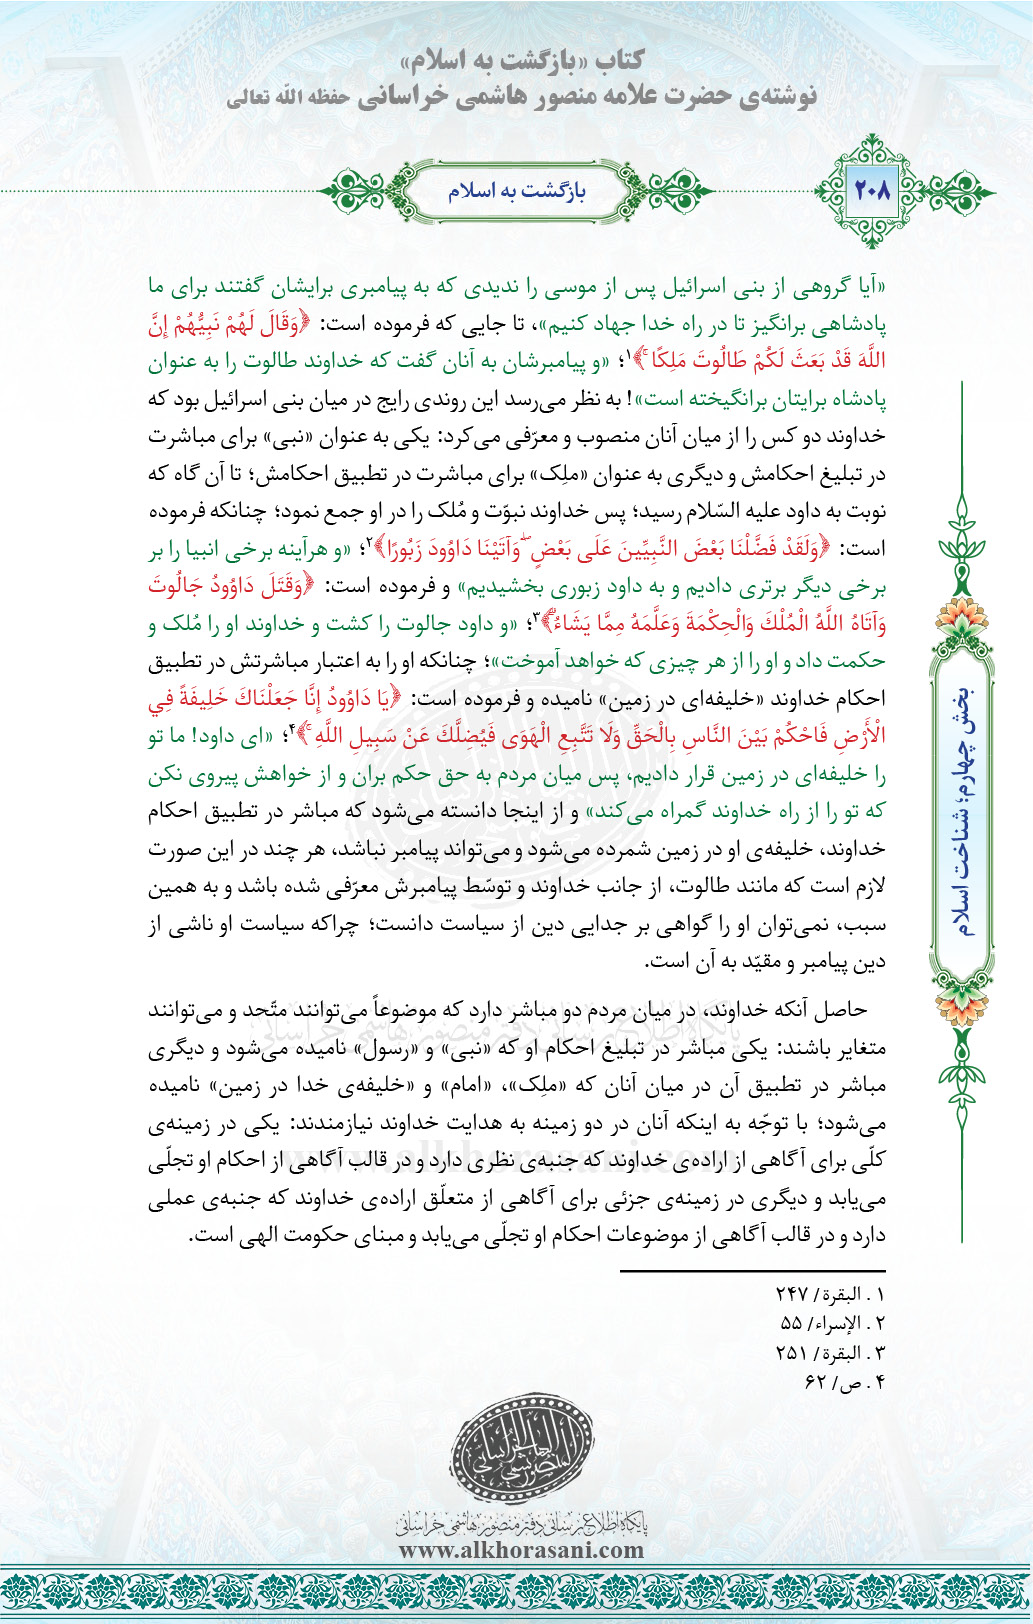 کتاب «بازگشت به اسلام»
نوشته‌ی حضرت علامه منصور هاشمی خراسانی حفظه الله تعالی
۲۰۸
بازگشت به اسلام
«آیا گروهی از بنی اسرائیل پس از موسی را ندیدی که به پیامبری برایشان گفتند برای ما
پادشاهی برانگیز تا در راه خدا جهاد کنیم»، تا جایی که فرموده است: ﴿وَقَالَ لَهُمْ نَبِيُّهُمْ إِنَّ
اللَّهَ قَدْ بَعَثَ لَكُمْ طَالُوتَ مَلِكًا ۚ﴾۱؛ «و پیامبرشان به آنان گفت که خداوند طالوت را به عنوان
پادشاه برایتان برانگیخته است»! به نظر می‌رسد این روندی رایج در میان بنی اسرائیل بود که
خداوند دو کس را از میان آنان منصوب و معرّفی می‌کرد: یکی به عنوان «نبی» برای مباشرت
در تبلیغ احکامش و دیگری به عنوان «ملِک» برای مباشرت در تطبیق احکامش؛ تا آن گاه که
نوبت به داود علیه السّلام رسید؛ پس خداوند نبوّت و مُلک را در او جمع نمود؛ چنانکه فرموده
است: ﴿وَلَقَدْ فَضَّلْنَا بَعْضَ النَّبِيِّينَ عَلَى بَعْضٍ ۖ وَآتَيْنَا دَاوُودَ زَبُورًا﴾۲؛ «و هرآینه برخی انبیا را بر
برخی دیگر برتری دادیم و به داود زبوری بخشیدیم» و فرموده است: ﴿وَقَتَلَ دَاوُودُ جَالُوتَ
وَآتَاهُ اللَّهُ الْمُلْكَ وَالْحِكْمَةَ وَعَلَّمَهُ مِمَّا يَشَاءُ ۗ﴾۳؛ «و داود جالوت را کشت و خداوند او را مُلک و
حکمت داد و او را از هر چیزی که خواهد آموخت»؛ چنانکه او را به اعتبار مباشرتش در تطبیق
احکام خداوند «خلیفه‌ای در زمین» نامیده و فرموده است: ﴿يَا دَاوُودُ إِنَّا جَعَلْنَاكَ خَلِيفَةً فِي
الْأَرْضِ فَاحْكُمْ بَيْنَ النَّاسِ بِالْحَقِّ وَلَا تَتَّبِعِ الْهَوَى فَيُضِلَّكَ عَنْ سَبِيلِ اللَّهِ ۚ﴾۴؛ «ای داود! ما تو
را خلیفه‌ای در زمین قرار دادیم، پس میان مردم به حق حکم بران و از خواهش پیروی نکن
که تو را از راه خداوند گمراه می‌کند» و از اینجا دانسته می‌شود که مباشر در تطبیق احکام
خداوند، خلیفه‌ی او در زمین شمرده می‌شود و می‌تواند پیامبر نباشد، هر چند در این صورت
لازم است که مانند طالوت، از جانب خداوند و توسّط پیامبرش معرّفی شده باشد و به همین
سبب، نمی‌توان او را گواهی بر جدایی دین از سیاست دانست؛ چراکه سیاست او ناشی از
دین پیامبر و مقیّد به آن است.
حاصل آنکه خداوند، در میان مردم دو مباشر دارد که موضوعاً می‌توانند متّحد و می‌توانند
متغایر باشند: یکی مباشر در تبلیغ احکام او که «نبی» و «رسول» نامیده می‌شود و دیگری
مباشر در تطبیق آن در میان آنان که «ملِک»، «امام» و «خلیفه‌ی خدا در زمین» نامیده
می‌شود؛ با توجّه به اینکه آنان در دو زمینه به هدایت خداوند نیازمندند: یکی در زمینه‌ی
کلّی برای آگاهی از اراده‌ی خداوند که جنبه‌ی نظری دارد و در قالب آگاهی از احکام او تجلّی
می‌یابد و دیگری در زمینه‌ی جزئی برای آگاهی از متعلّق اراده‌ی خداوند که جنبه‌ی عملی
دارد و در قالب آگاهی از موضوعات احکام او تجلّی می‌یابد و مبنای حکومت الهی است.
۱ . البقرة/ ۲۴۷
۲ . الإسراء/ ۵۵
۳ . البقرة/ ۲۵۱
۴ . ص/ ۶۲
بخش چهارم؛ شناخت اسلام
پایگاه اطلاع‌رسانی دفتر منصور هاشمی خراسانی
www.alkhorasani.com
المنصور الهاشمي الخراساني
پایگاه اطلاع‌رسانی دفتر منصور هاشمی خراسانی
www.alkhorasani.com